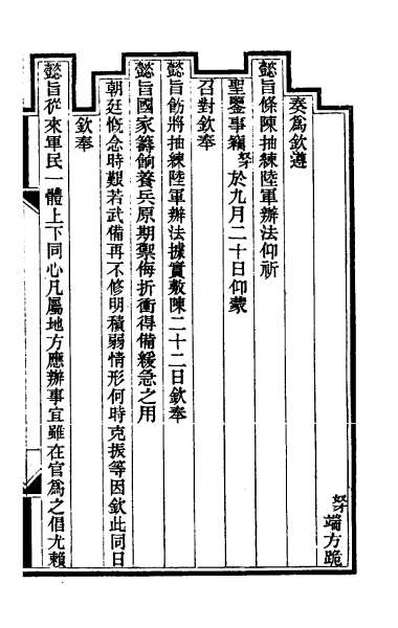 奴端方跪
奏爲欽遵
懿旨條陳抽練陸軍辦法仰祈
聖鑒事竊奴於九月二十日仰蒙
召對欽奉
懿旨飭將抽練陸軍辦法據實敷陳二十二日欽奉
懿旨國家籌餉養兵原期禦侮折衝得備緩急之用
朝廷慨念時艱若武備再不修明積弱情形何時克振等因欽此同日
欽奉
懿旨從來軍民一體上下同心凡屬地方應辦事宜雖在官爲之倡尤賴